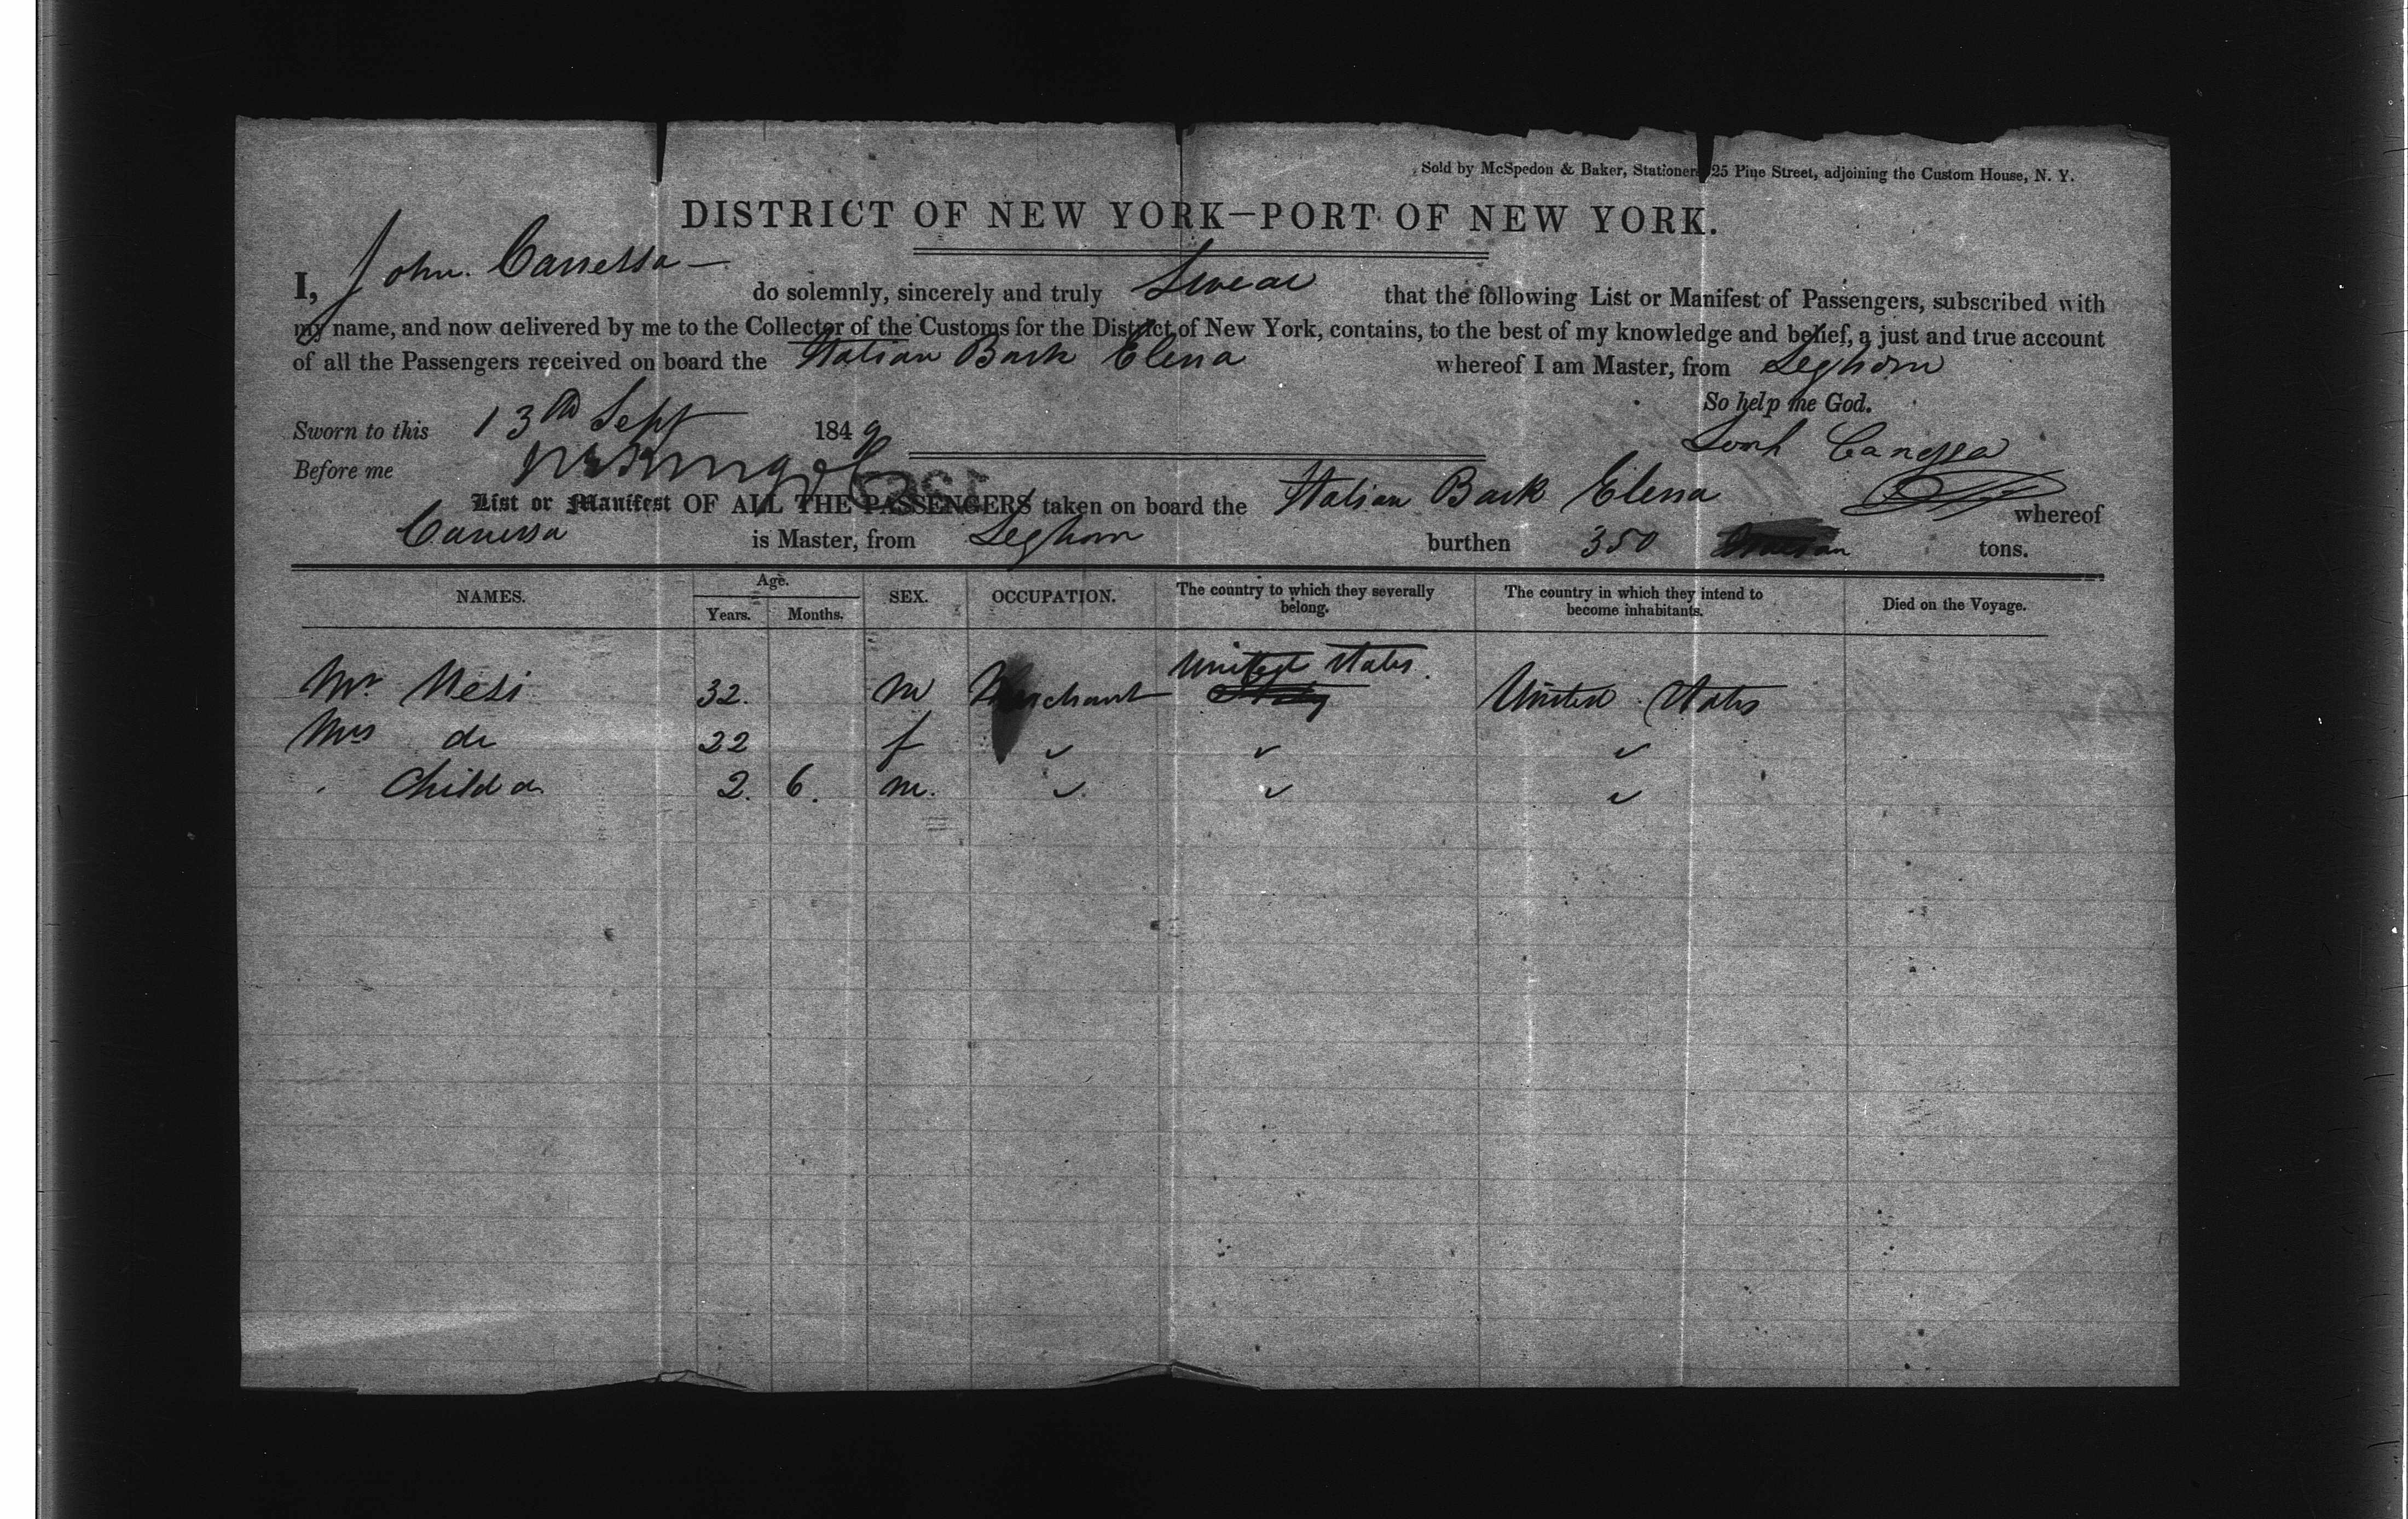 Sold by McSpedon & Baker, Stationers 25 Pine Street, adjoining the Custom House, N. Y.
DISTRICT OF NEW YORK—PORT OF NEW YORK.
I, John. Canessa — do solemnly, sincerely and truly Swear that the following List or Manifest of Passengers, subscribed with
my name, and now delivered by me to the Collector of the Customs for the District of New York, contains, to the best of my knowledge and belief, a just and true account
of all the Passengers received on board the Italian Bark Elena whereof I am Master, from Leghorn
So help me God.
Sworn to this 13th Sept 1849
Canessa
Before me
List or Manifest OF ALL THE PASSENGERS taken on board the Italian Bark Elena whereof
Canessa is Master, from Leghorn burthen 350 tons.
NAMES. Age. Years. Months. SEX. OCCUPATION. The country to which they severally belong. The country in which they intend to become inhabitants. Died on the Voyage.
Mr Nesi 32. m Merchant United States. United States
Mrs do 22 f
Child do 2. 6. m.